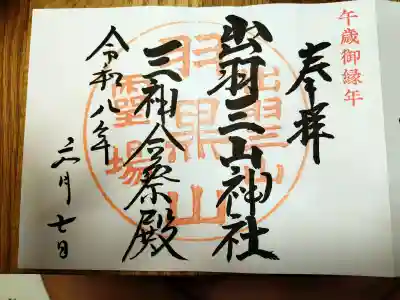 午歳御縁年
奉拝
出羽三山神社
三神合祭殿
令和八年
月七日
羽黒山
霊場